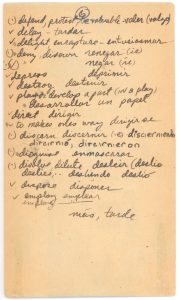 6
defend, protect
delay - tardar
delight enrapture - entusiasmar
deny, disown renegar (ie)
" negar (ie)
depress deprimir
destroy destruir
develop a part (in a play)
desarrollar un papel
direct dirigir
to make one's way dirigirse
discern discernir (ie) discierniendo
discirnió, discirnieron
disguise enmascarar
dissolve dilute desleír (deslío
deslíes, .. desliendo deslió
dispose disponer
employ emplear
más, tarde